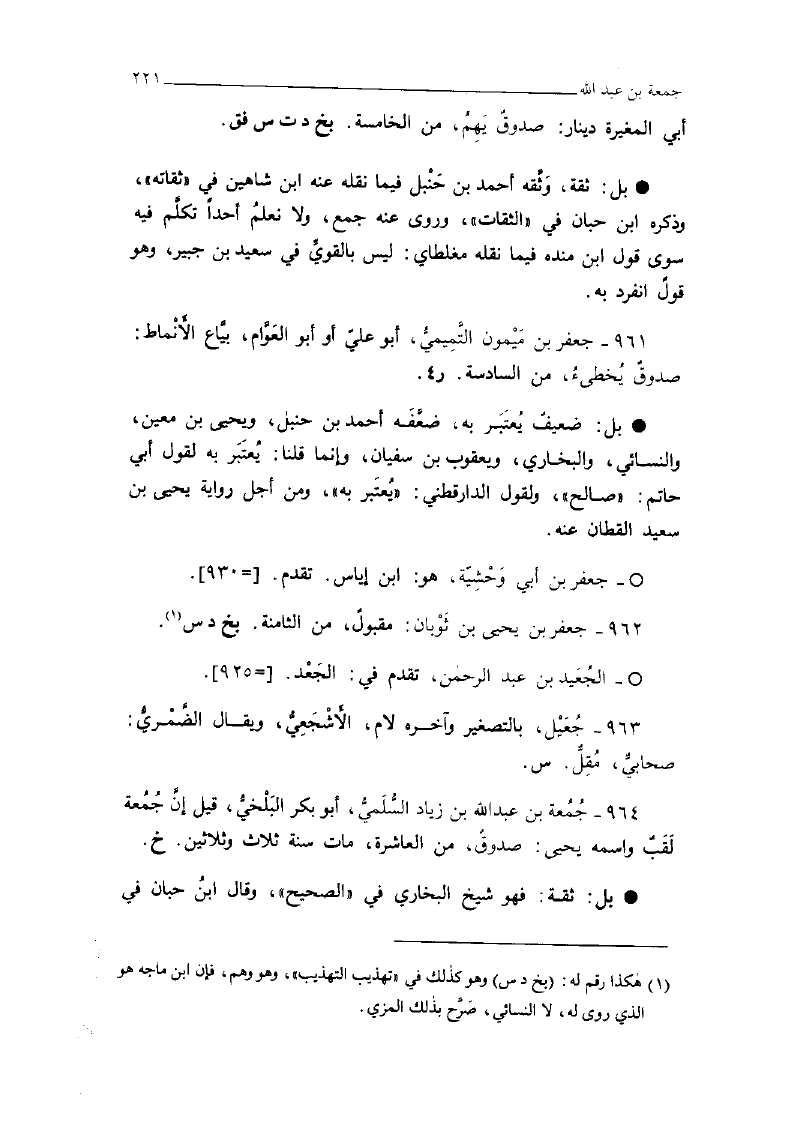 جمعة بن عبد الله ٢٢١
أبي المغيرة دينار: صدوقٌ يَهِمُ، من الخامسة. بخ د ت س فق.
● بل: ثقة، وَثَّقه أحمد بن حَنْبل فيما نقله عنه ابن شاهين في «ثقاته»،
وذكره ابن حبان في «الثقات»، وروى عنه جمع، ولا نعلمُ أحداً تكلَّم فيه
سوى قول ابن منده فيما نقله مغلطاي: ليس بالقويِّ في سعيد بن جبير، وهو
قولٌ انفرد به.
٩٦١ - جعفر بن مَيْمون التَّمِيميُّ، أبو عليّ أو أبو العَوَّام، بيَّاع الأَنْماط:
صدوقٌ يُخطىءُ، من السادسة. ر٤.
● بل: ضعيفٌ يُعتَبَر به، ضعَّفَه أحمد بن حنبل، ويحيى بن معين،
والنسائي، والبخاري، ويعقوب بن سفيان، وإنما قلنا: يُعتَبَر به لقول أبي
حاتم: «صالح»، ولقول الدارقطني: «يُعتَبر به»، ومن أجل رواية يحيى بن
سعيد القطان عنه.
○ - جعفر بن أبي وَحْشِيّة، هو: ابن إياس. تقدم. [=٩٣٠].
٩٦٢ - جعفر بن يحيى بن ثَوْبان: مقبولٌ، من الثامنة. بخ د س(١).
○ - الجُعَيد بن عبد الرحمٰن، تقدم في: الجَعْد. [=٩٢٥].
٩٦٣ - جُعَيْل، بالتصغير وآخره لام، الأَشْجَعِيُّ، ويقال الضَّمْريُّ:
صحابيٌّ، مُقِلٌّ. س.
٩٦٤ - جُمُعة بن عبدالله بن زياد السُّلَميُّ، أبو بكر البَلْخيُّ، قيل إنَّ جُمُعة
لَقَبٌ واسمه يحيى: صدوقٌ، من العاشرة، مات سنة ثلاث وثلاثين. خ.
● بل: ثقة: فهو شيخ البخاري في «الصحيح»، وقال ابنُ حبان في
(١) هٰكذا رقم له: (بخ د س) وهو كذلك في «تهذيب التهذيب»، وهو وهم، فإن ابن ماجه هو
الذي روى له، لا النسائي، صَرَّح بذٰلك المزي.